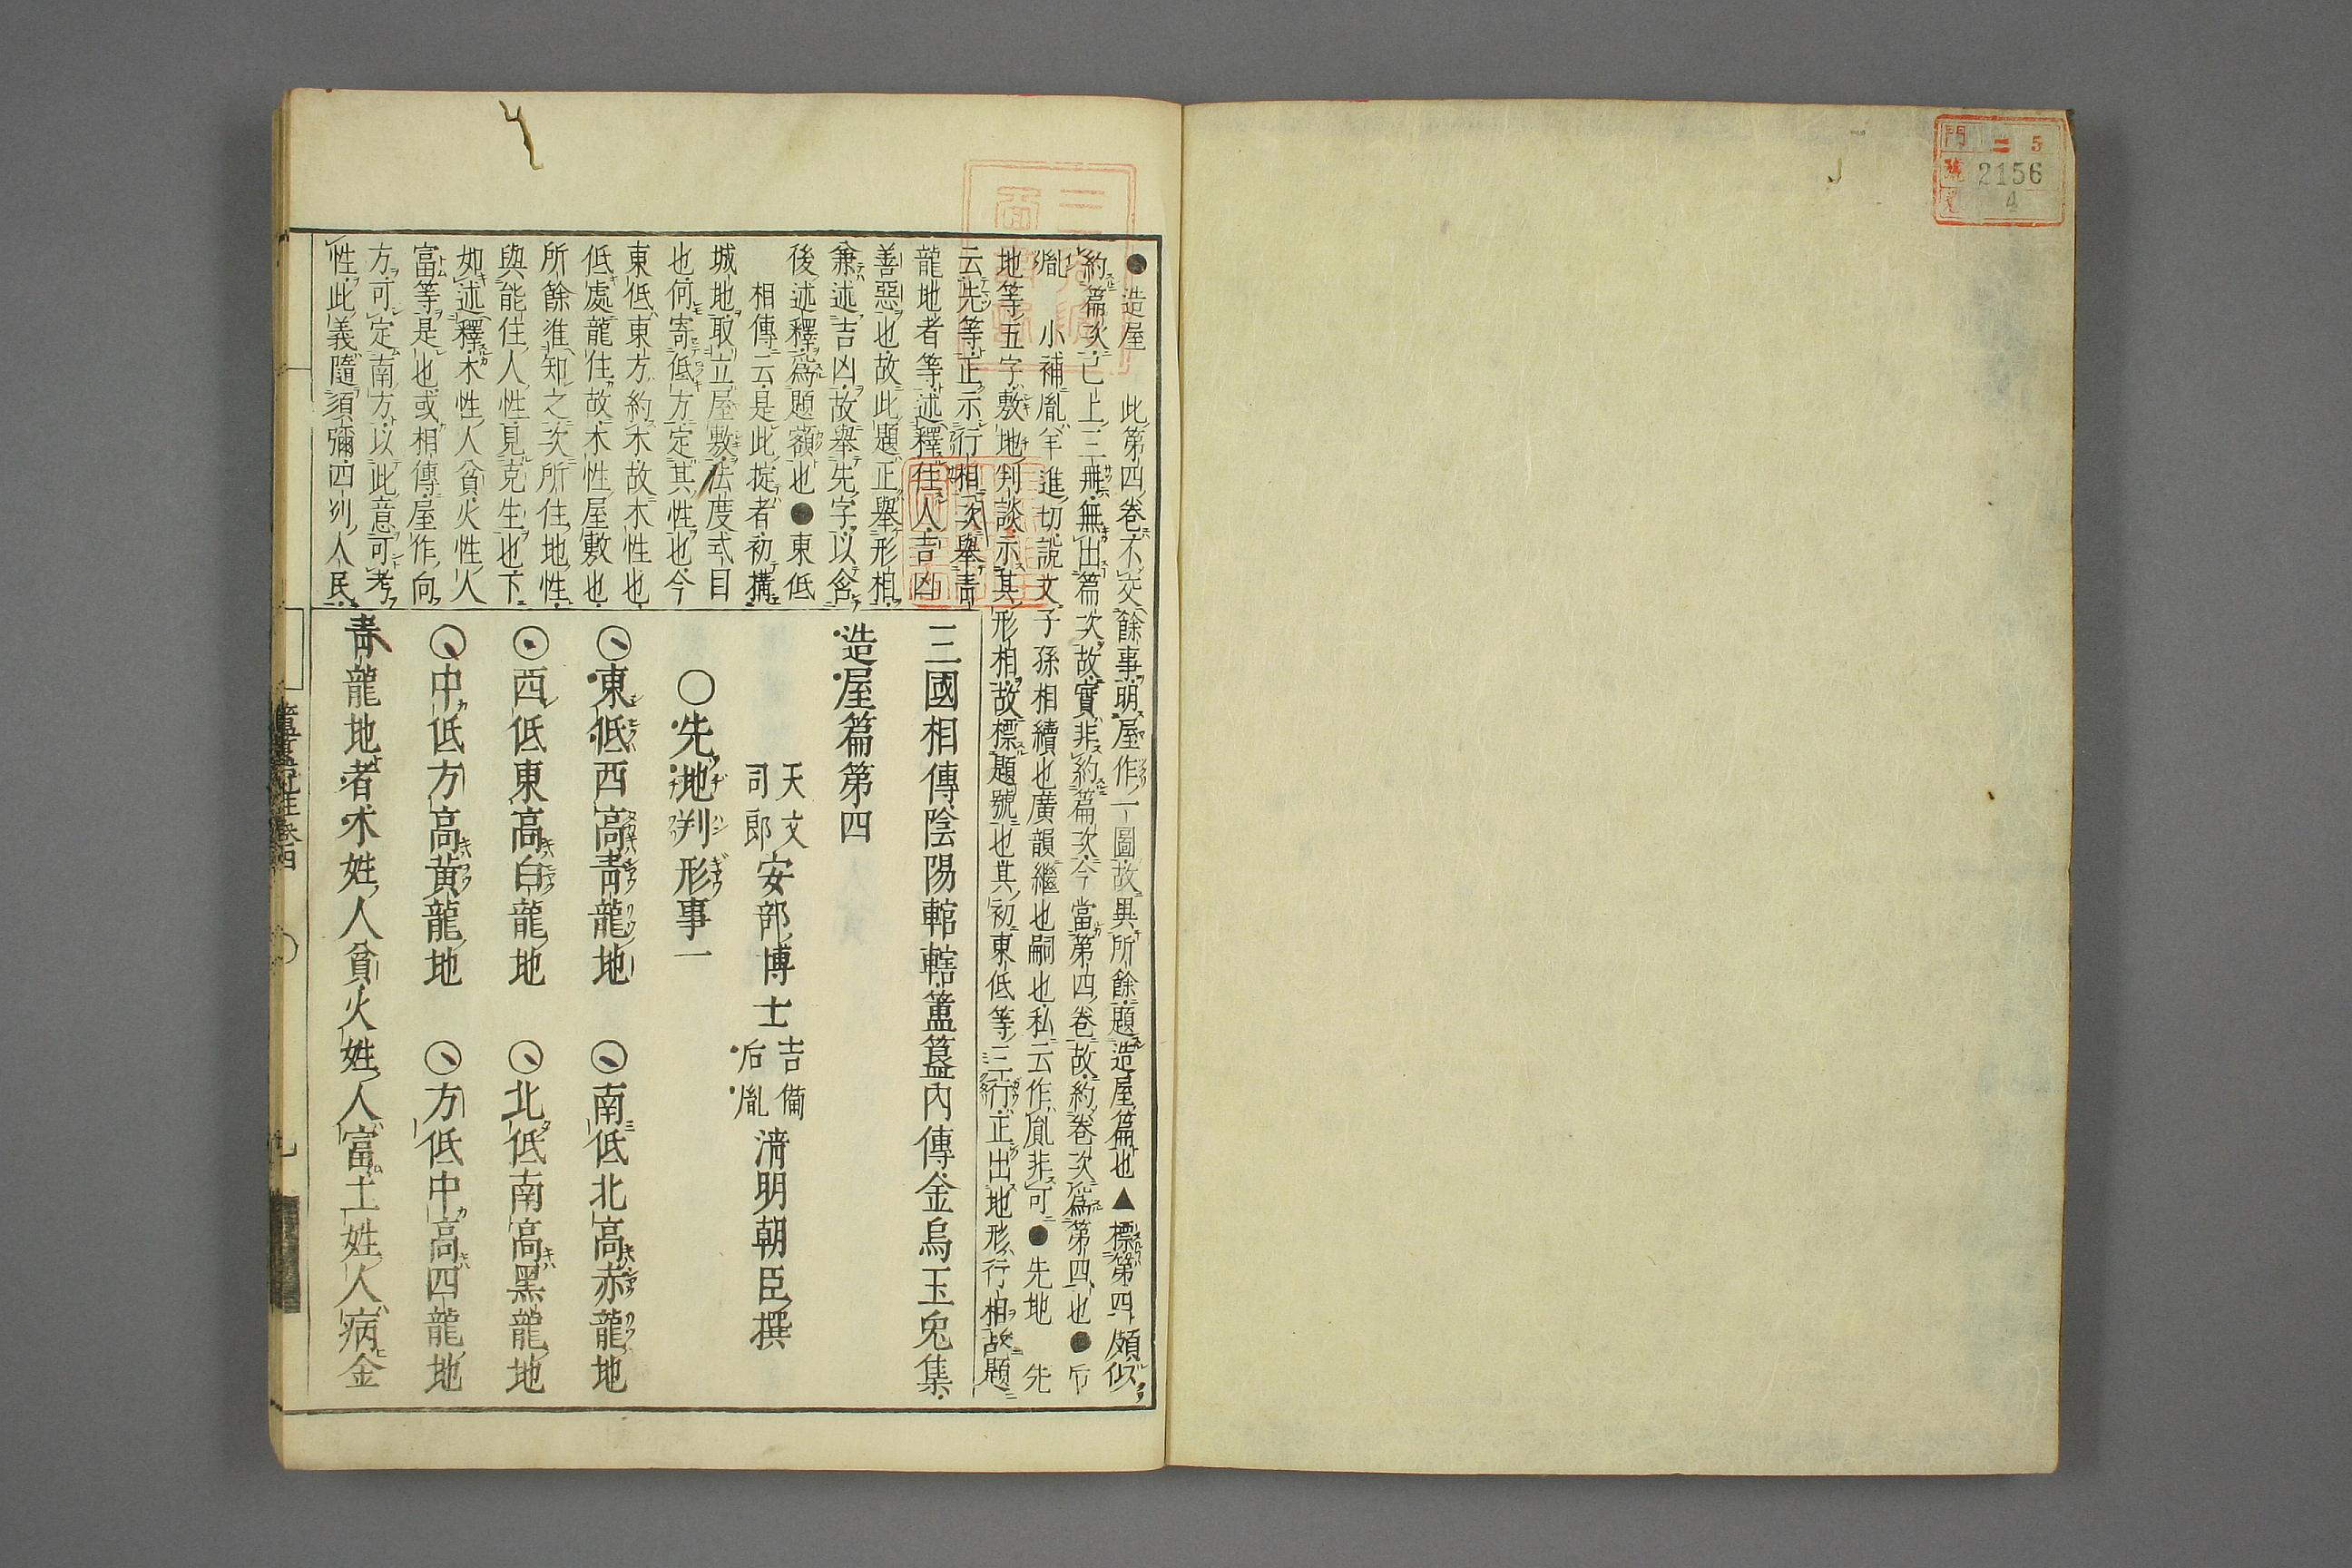 門 二 5
號 2156
4
●造屋 此第四卷不交餘事明屋作一圖故與所餘題造屋篇也▲標第四頗似
約篇次已上三冊無出篇次故實非約篇次今當第四卷故約卷次爲第四也●后
胤 小補胤羊進切說文子孫相續也廣韻繼也嗣也私云作胤非可●先地 先
地等五字敷地判談示其形相故標題號也其初東低等三行正出地形行相故題
云先等正示行相次舉青
龍地者等述釋住人吉凶
善惡也故此題正舉形相
兼述吉凶故舉先字以含
後述釋爲題額也●東低
相傳云是此掟者初搆
城地取立屋敷法度式目
也何寄低方定其性也今
東低東方約木故木性也
低處龍住故木性屋敷也
所餘准知之次所住地性
與能住人性見克生也下
如述釋木性人貧火性人
富等是也或相傳屋作向
方可定南方以此意可考
性此義隨須彌四列人民
三國相傳陰陽輨轄簠簋內傳金烏玉兔集
天文司郎安部博士吉備后胤清明朝臣撰
造屋篇第四
○先地判形事一
東低西高青龍地 南低北高赤龍地
西低東高白龍地 北低南高黑龍地
中低方高黃龍地 方低中高四龍地
青龍地者木姓人貧火姓人富土姓人病金
簠簋 卷四